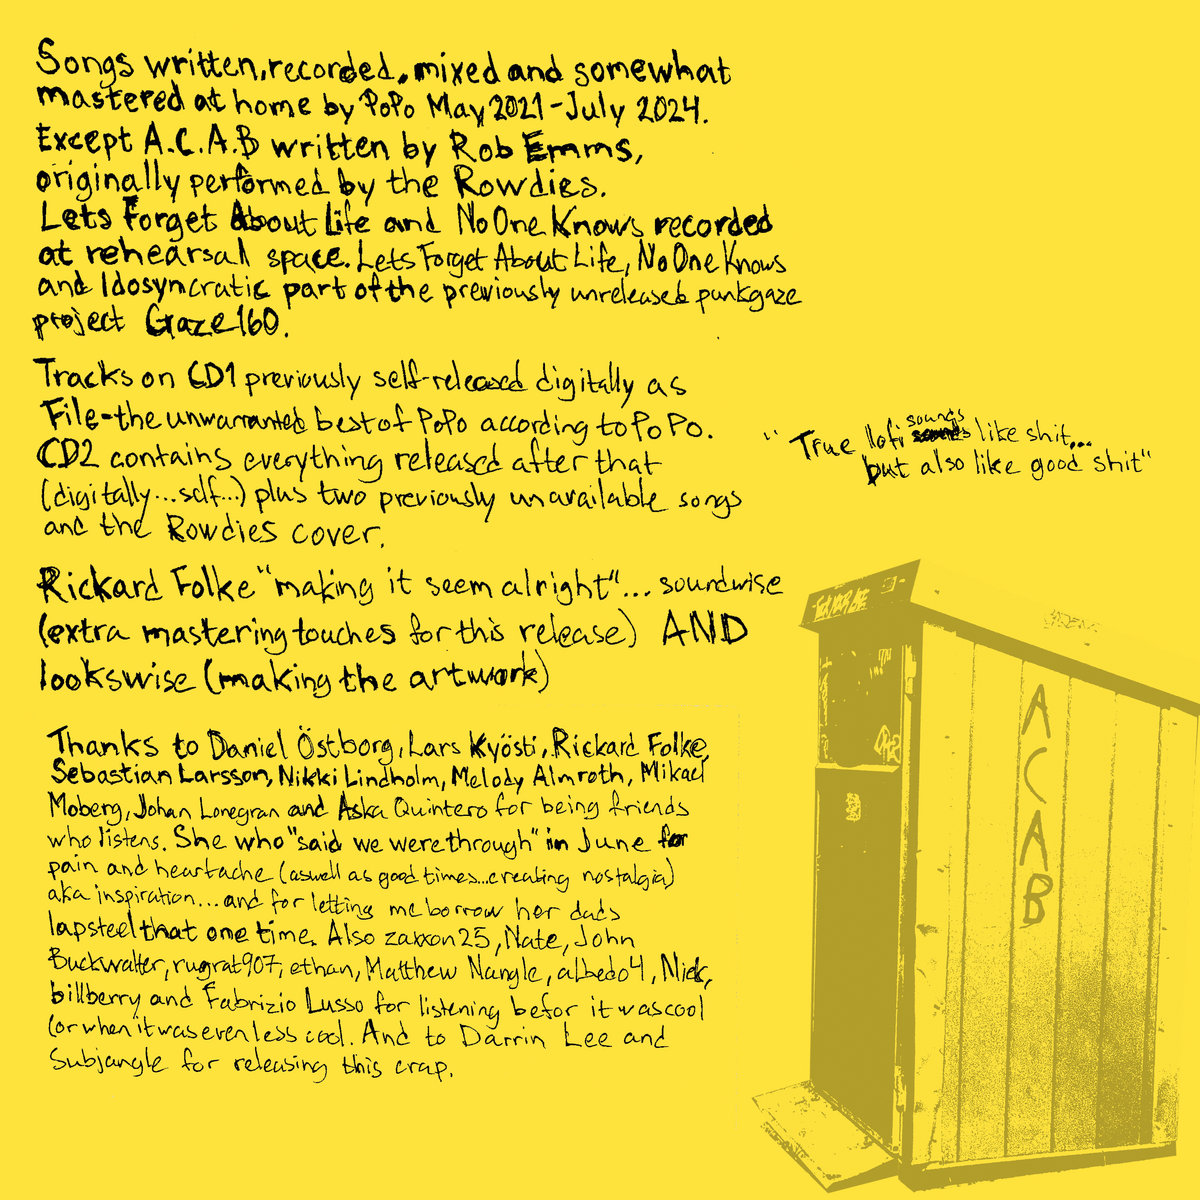 Songs written, recorded, mixed and somewhat
mastered at home by PoPo May 2021-July 2024.
Except A.C.A.B written by Rob Emms,
originally performed by the Rowdies.
Lets Forget About Life and No One Knows recorded
at rehearsal space. Lets Forget About Life, No One Knows
and Idosyncratic part of the previously unreleased punkgaze
project Gaze160.
Tracks on CD1 previously self-released digitally as
File-the unwarranted best of PoPo according to PoPo.
CD2 contains everything released after that
(digitally...self...) plus two previously unavailable songs
and the Rowdies cover.
Rickard Folke "making it seem alright"... soundwise
(extra mastering touches for this release) AND
lookswise (making the artwork)
Thanks to Daniel Östborg, Lars Kyösti, Rickard Folke,
Sebastian Larsson, Nikki Lindholm, Melody Almroth, Mikael
Moberg, Johan Lonegran and Aska Quintero for being friends
who listens. She who "said we were through" in June for
pain and heartache (aswell as good times...creating nostalgia)
aka inspiration... and for letting me borrow her dads
lapsteel that one time. Also zaxxon25, Nate, John
Buckwalter, rugrat907, ethan, Matthew Nangle, albedo4, Nick,
billberry and Fabrizio Lusso for listening befor it was cool
(or when it was even less cool. And to Darrin Lee and
Subjangle for releasing this crap.
"True lofi sounds like shit...
but also like good shit"
ACAB